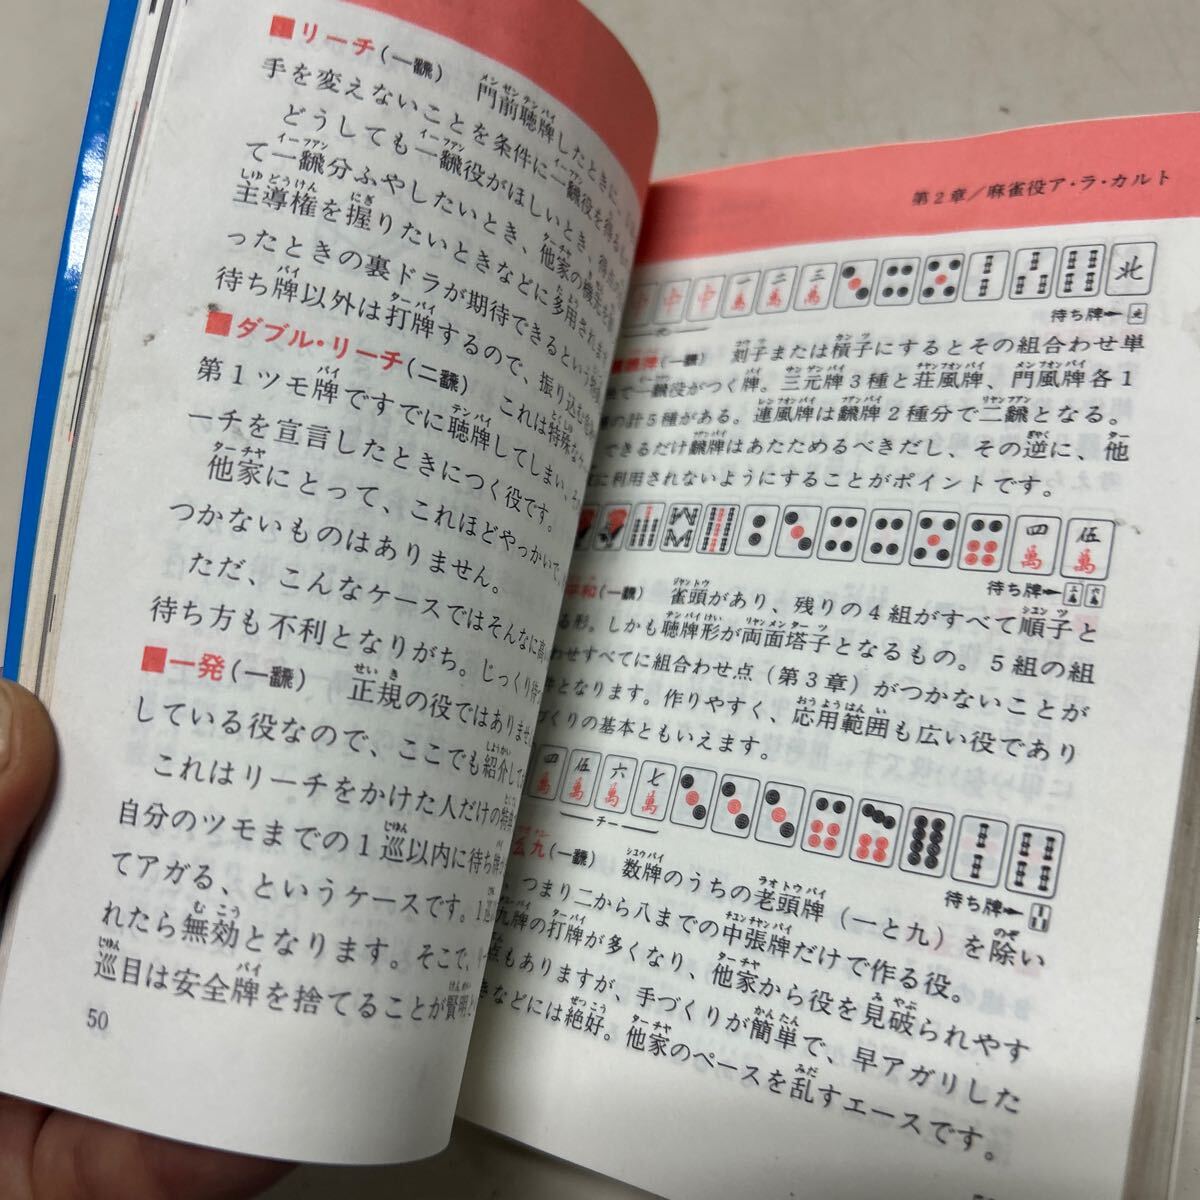 ■リーチ(一飜) 門前聴牌したときに、
手を変えないことを条件に一飜役を得る
どうしても一飜役がほしいとき、得点
て一飜分ふやしたいとき、他家の機先を
主導権を握りたいときなどに多用されます
ったときの裏ドラが期待できるという
待ち牌以外は打牌するので、振り込む
■ダブル・リーチ(二飜) これは特殊な
第1ツモ牌ですでに聴牌してしまい、
ーチを宣言したときにつく役です。
他家にとって、これほどやっかいで、
つかないものはありません。
ただ、こんなケースではそんなに高
待ち方も不利となりがち。じっくり待
■一発(一飜) 正規の役ではありませ
している役なので、ここでも紹介して
これはリーチをかけた人だけの特典
自分のツモまでの1巡以内に待ち牌
てアガる、というケースです。1巡
れたら無効となります。そこで、
巡目は安全牌を捨てることが賢明
50
第2章/麻雀役ア・ラ・カルト
中 中 一萬 二萬 三萬 北
待ち牌→北
(一飜) 刻子または槓子にするとその組合わせ単
で一飜役がつく牌。三元牌3種と荘風牌、門風牌各1
の計5種がある。連風牌は飜牌2種分で二飜となる。
できるだけ飜牌はあたためるべきだし、その逆に、他
に利用されないようにすることがポイントです。
四萬 伍萬
待ち牌→三萬 六萬
平和(一飜) 雀頭があり、残りの4組がすべて順子と
る形。しかも聴牌形が両面塔子となるもの。5組の組
わせすべてに組合わせ点(第3章)がつかないことが
件となります。作りやすく、応用範囲も広い役であり
づくりの基本ともいえます。
四萬 伍萬 六萬 七萬
チー
待ち牌→
么九(一飜) 数牌のうちの老頭牌(一と九)を除い
、つまり二から八までの中張牌だけで作る役。
九牌の打牌が多くなり、他家から役を見破られやす
点もありますが、手づくりが簡単で、早アガリした
きなどには絶好。他家のペースを乱すエースです。